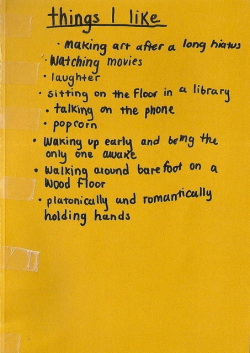 things I like
· making art after a long hiatus
· Watching movies
· laughter
· sitting on the floor in a library
· talking on the phone
· popcorn
· Waking up early and being the
only one awake
· Walking around barefoot on a
Wood Floor
· platonically and romantically
holding hands